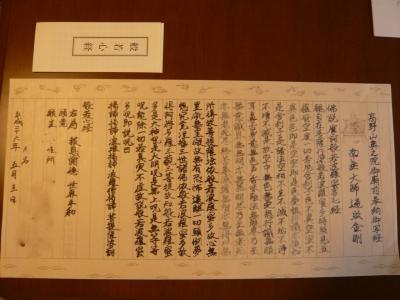 般若心経
高野山奥之院御廟前奉納御写経
南無大師遍照金剛
佛説摩訶般若波羅蜜多心経
観自在菩薩行深般若波羅蜜多時照見五
蘊皆空度一切苦厄舎利子色不異空空不
異色色即是空空即是色受想行識亦復如
是舎利子是諸法空相不生不滅不垢不浄
不増不減是故空中無色無受想行識無眼
耳鼻舌身意無色声香味触法無眼界乃至
無意識界無無明亦無無明尽乃至無老死
亦無老死尽無苦集滅道無智亦無得以無
所得故菩提薩埵依般若波羅蜜多故心無
罣礙無罣礙故無有恐怖遠離一切顛倒夢
想究竟涅槃三世諸佛依般若波羅蜜多故
得阿耨多羅三藐三菩提故知般若波羅蜜
多是大神呪是大明呪是無上呪是無等等
呪能除一切苦真実不虚故説般若波羅蜜
多呪即説呪曰
掲諦掲諦波羅掲諦波羅僧掲諦菩提薩婆訶
般若心経
右為 報恩謝徳 世界平和
願意
願主 住所
氏名
平成二十六年 五月 三日